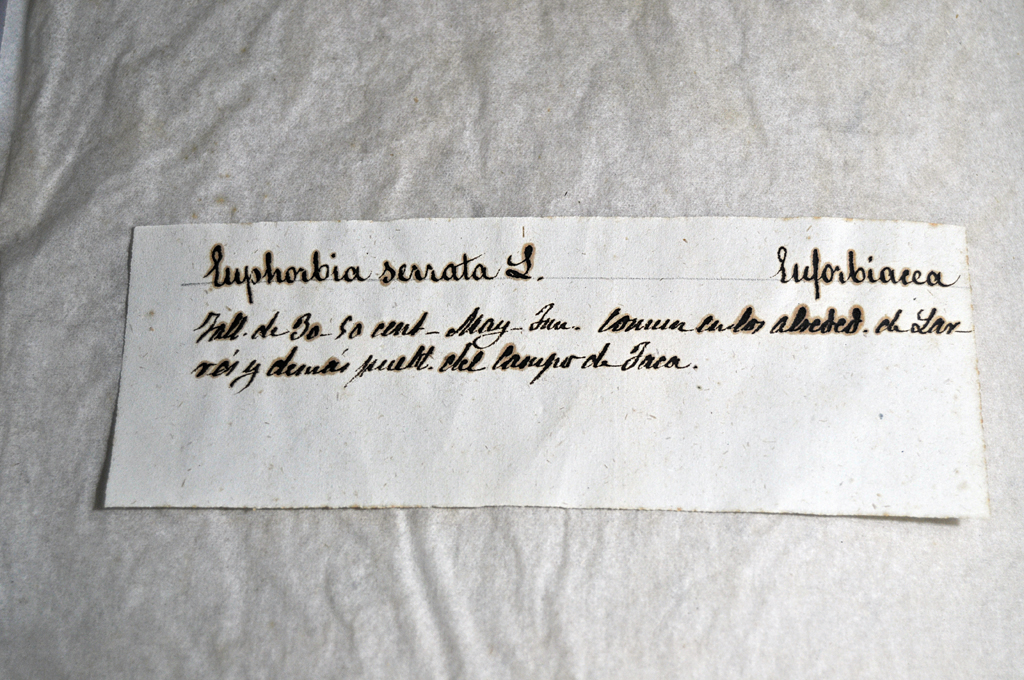 Euphorbia serrata L. Euforbiacea
Tall. de 30-50 cent - May - Jun. Comun en los alreded. de Lar
rés y demás puebl. del Campo de Jaca.